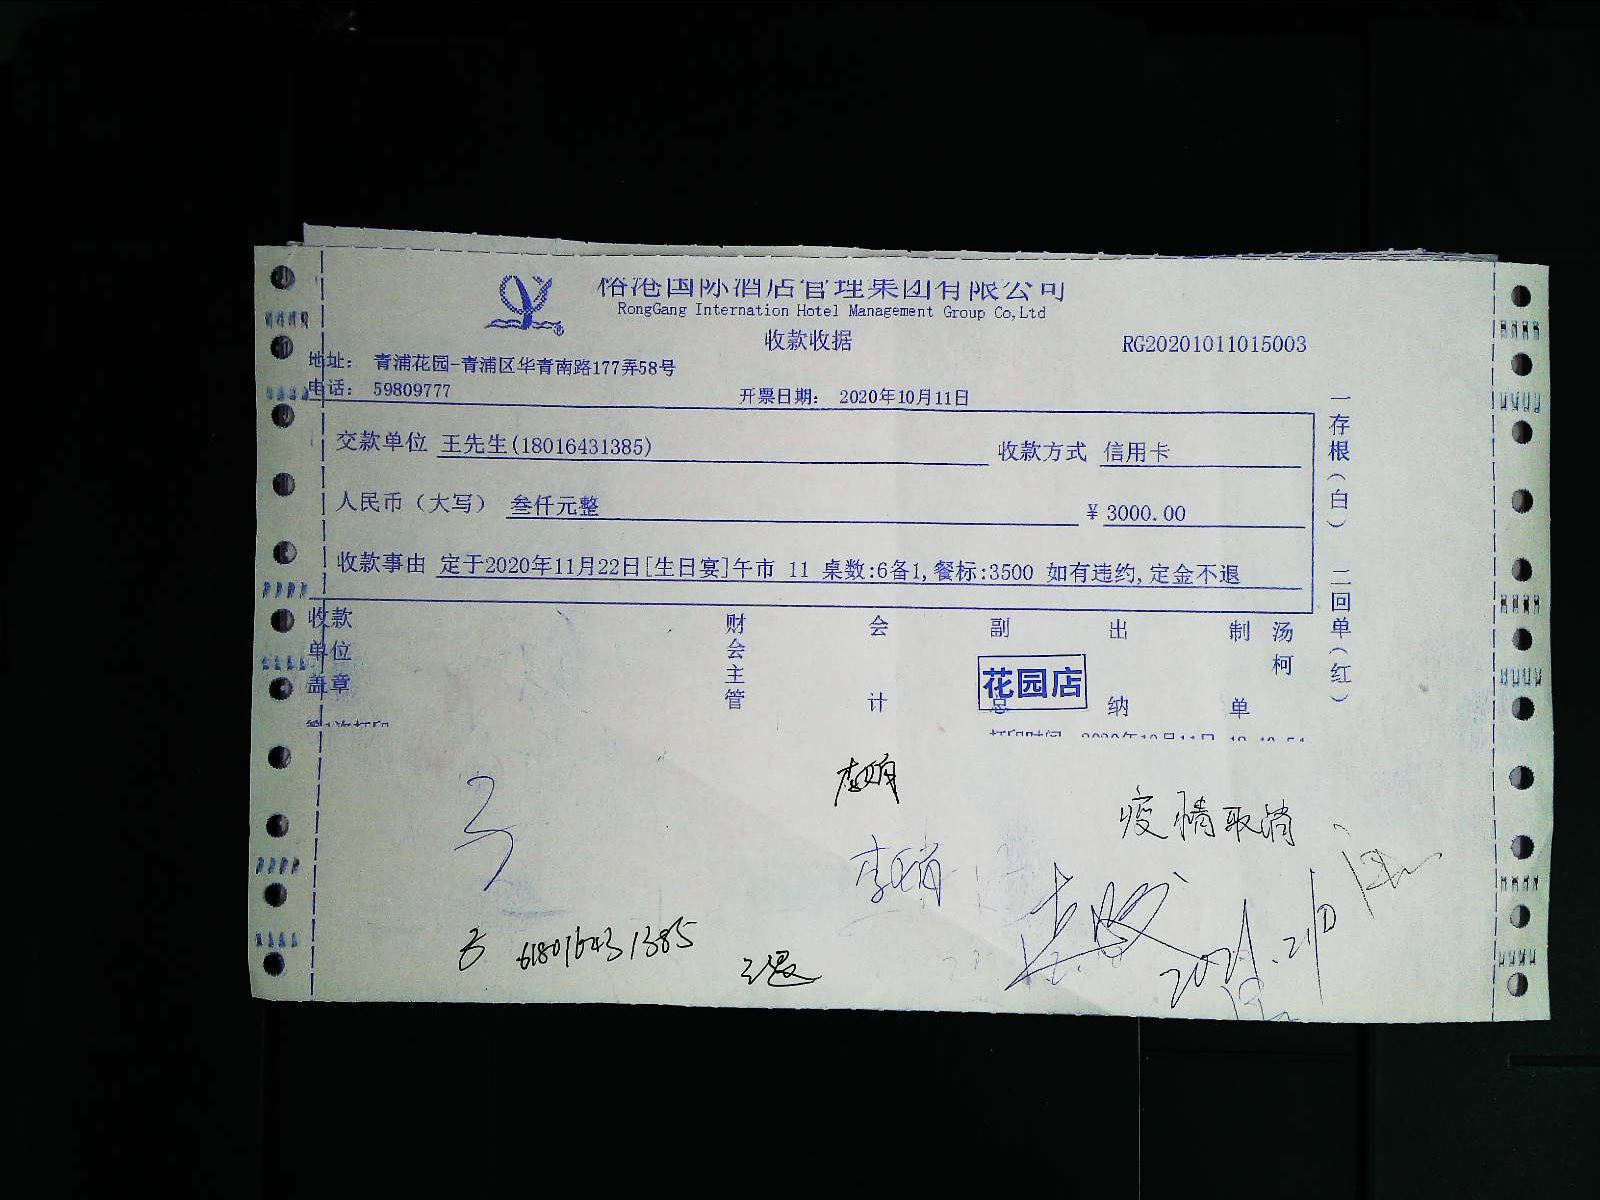 裕港国际酒店管理集团有限公司
RongGang Internation Hotel Management Group Co,Ltd
收款收据
RG20201011015003
地址： 青浦花园-青浦区华青南路177弄58号
电话： 59809777
开票日期： 2020年10月11日
交款单位 王先生(18016431385)
收款方式 信用卡
人民币（大写） 叁仟元整
¥ 3000.00
收款事由 定于2020年11月22日[生日宴]午市 11 桌数:6备1,餐标:3500 如有违约,定金不退
一存根（白） 二回单（红）
收款单位盖章
财会主管
会计
副总
出纳
制单
汤柯
花园店
疫情取消